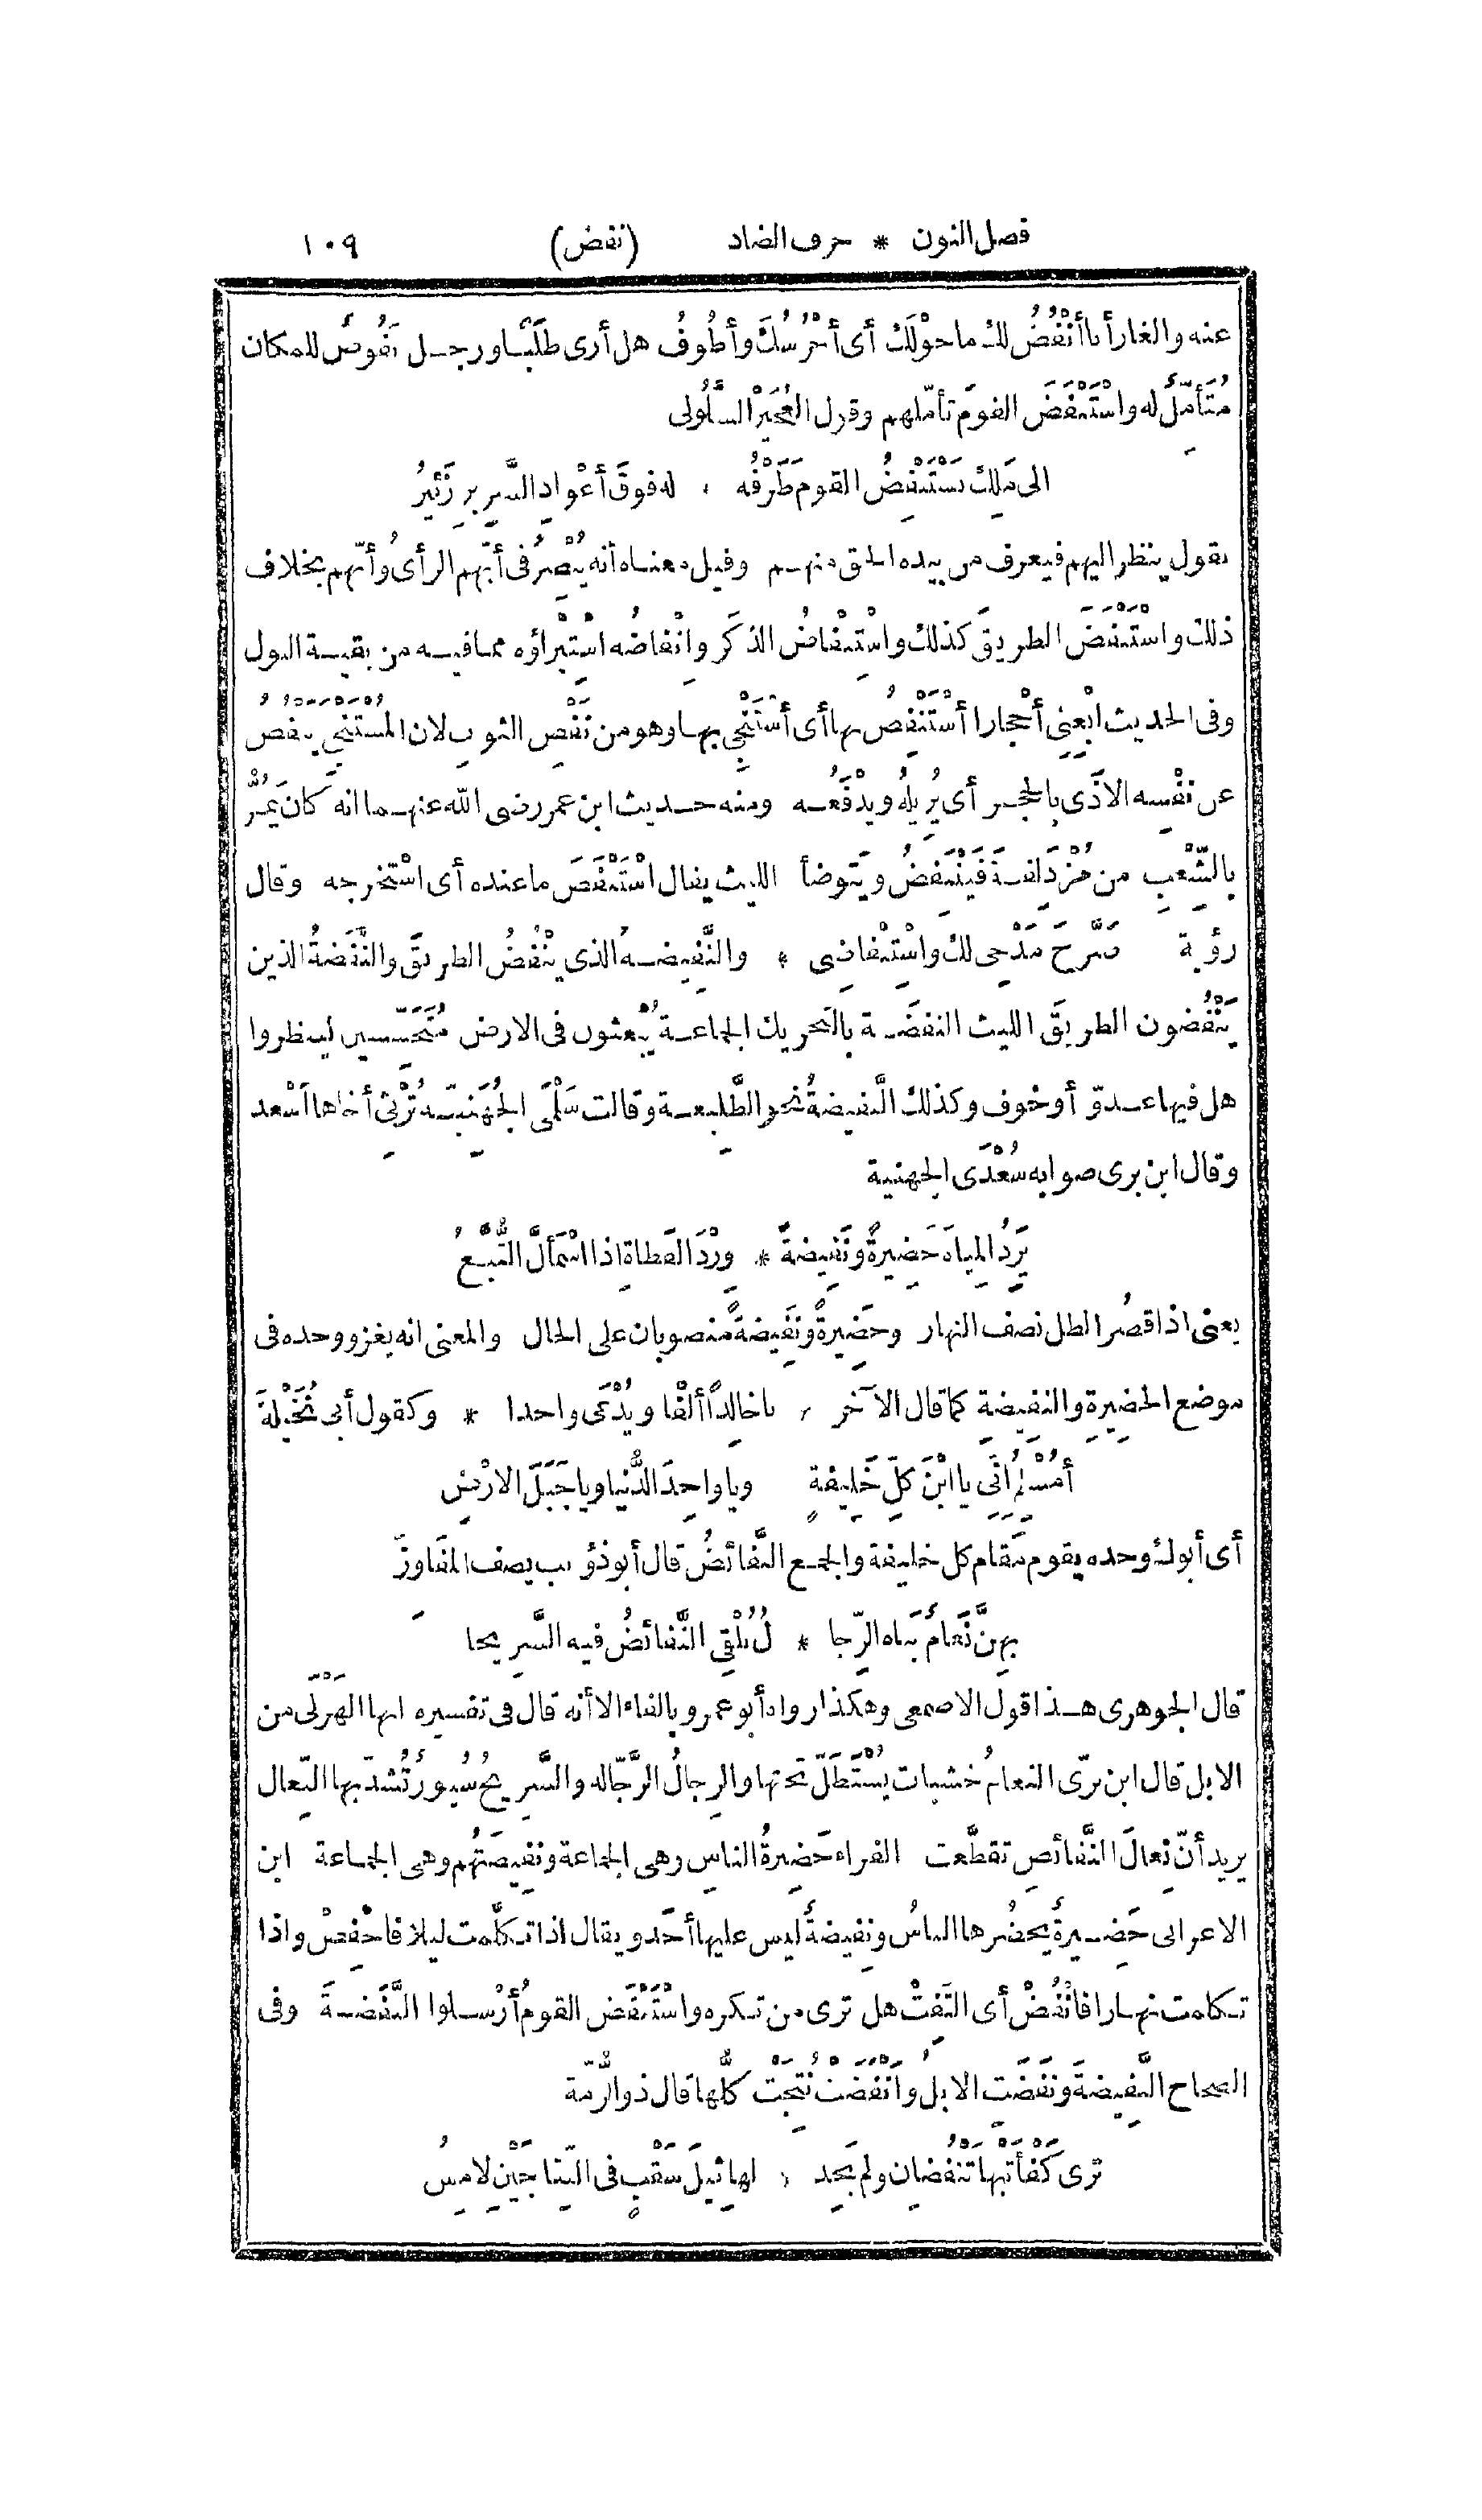 فصل النون * حرف الضاد (نفض) ١٠٩
عنه والغار أنا أنْفُضُ لك ما حوْلَك أى أحْرُسُك وأطُوفُ هل أرى طَلَبًا ورجل نَفُوضٌ للمكان
مُتَأَمِّلٌ له واسْتَنْفَضَ القومَ تأمّلهم وقول العُجَيْر السَّلُولى
الى مَلِكٍ يَسْتَنْفِضُ القومَ طَرْفُه * له فوقَ أعْوادِ السَّرِيرِ زَئيرُ
يقول ينظر اليهم فيعرف من بيده الحق منهم وقيل معناه أنه يُبْصِرُ فى أيّهم الرأىُ وأيّهم بخلاف
ذلك واسْتَنْفَضَ الطريقَ كذلك واسْتِنْفاضُ الذكَرِ وانْفاضُه اسْتِبْراؤه مما فيه من بقية البول
وفى الحديث ابْغِنِى أحْجارا أسْتَنْفِضُ بها أى أسْتَنْجِى بها وهو من نَفْضِ الثوبِ لان المُسْتَنْجِىَ يَنْفُضُ
عن نفْسِه الاَذَى بالحَجَر أى يُزِيلُه ويدْفَعُه ومنه حديث ابن عمر رضى الله عنهما انه كان يَمُرُّ
بالشِّعْبِ من مُزْدَلِفةَ فَيَنْتَفِضُ ويَتوضأ الليث يقال اسْتَنْفَضَ ما عنده أى اسْتَخرجه وقال
رؤبة صَرَّحَ مَدْحِى لك واسْتِنْفاضِى * والنَّفِيضةُ الذى يَنْفُضُ الطريقَ والنَّفَضةُ الذين
يَنْفُضون الطريقَ الليث النفضَة بالتحريك الجماعة يُبْعثون فى الارض مُتَجَسِّسِين لينظروا
هل فيها عدوّ أو خوف وكذلك النَّفيضةُ نحو الطَّلِيعة وقالت سَلْمَى الجُهَنِيّة تَرْثِى أخاها أسْعد
وقال ابن برى صوابه سُعْدَى الجهنية
يَرِدُ المِياهَ حَضِيرةً ونَفِيضةً * وِرْدَ القَطاةِ اذا اسْمَأَلَّ التُّبَّعُ
يعنى اذا قصُر الظل نصف النهار وحَضِيرةً ونَفِيضةً منصوبان على الحال والمعنى انه يغزو وحده فى
موضع الحَضِيرةِ والنفِيضةِ كما قال الآخر * يا خالِدًا ألْفًا ويُدْعَى واحدا * وكقول أبى نُخَيْلةَ
أمُسْلِمُ إنِّى يا ابْنَ كلِّ خَلِيفةٍ ويا واحِدَ الدُّنيا ويا جَبَلَ الارْضِ
أى أبوك وحده يقوم مَقام كل خليفة والجمع النَّفائضُ قال أبو ذؤيب يصف المَفاوِزَ
بهِنَّ نَعامٌ بَناه الرِّجا * لُ تُلْقِى النَّفائضُ فيه السَّرِيحا
قال الجوهرى هذا قول الاصمعى وهكذا رواه أبو عمرو بالفاء الا أنه قال فى تفسيره انها الهَزْلَى من
الابل قال ابن برّى النعامُ خشبات يُسْتَظَلّ تحتها والرِجالُ الرَّجّالة والسَّرِيحُ سُيورٌ تُشدّ بها النِّعال
يريد أنّ نِعالَ النَّفائضِ تقطَّعت الفراء حَضِيرةُ الناسِ وهى الجماعة ونفِيضَتُهم وهى الجماعة ابن
الاعرابى حَضِيرةٌ يحضُرها الناسُ ونفِيضةٌ ليس عليها أحَد ويقال اذا تكلَّمت ليلا فاخْفِضْ واذا
تكلمت نهارا فانْفُضْ أى التَفِتْ هل ترى من تكره واسْتَنْفَض القومُ أرْسلوا النَّفَضةَ وفى
الصحاح النَّفِيضةَ ونَفَضَتِ الابلُ وأنْفَضَتْ نُتِجَتْ كلُّها قال ذو الرُّمّة
تَرى كَفْأَتَيْها تُنْفِضانِ ولم يَجِد * لها ثِيلَ سَقْبٍ فى النِّتاجَيْنِ لامِسُ